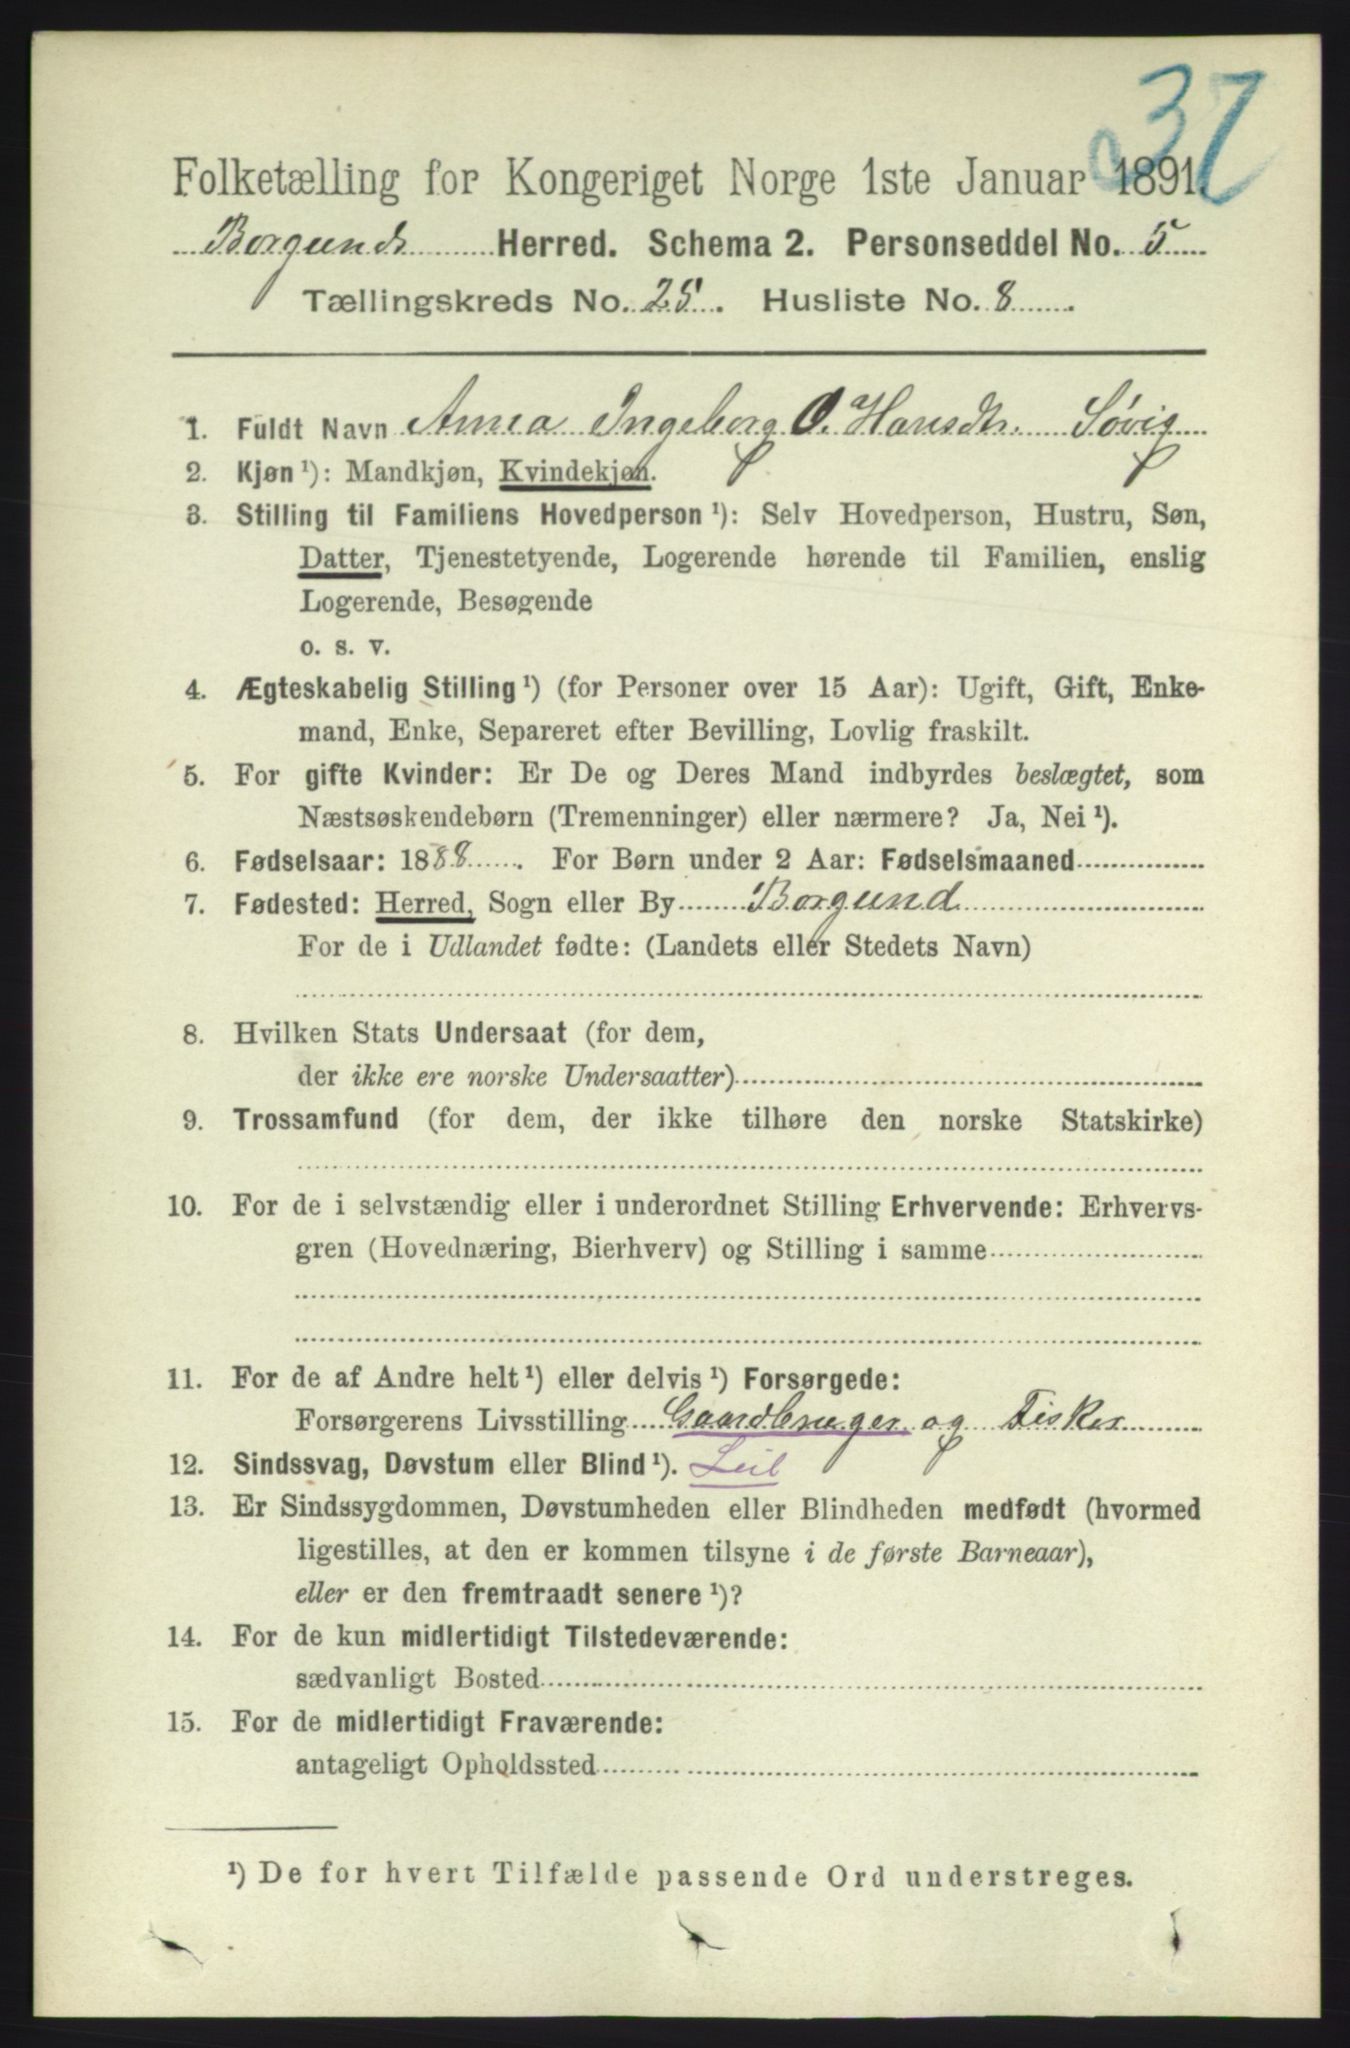 37
Folketælling for Kongeriget Norge 1ste Januar 1891.
Borgund Herred. Schema 2. Personseddel No. 5
Tællingskreds No. 25. Husliste No. 8.
1. Fuldt Navn Anna Ingeborg O. Hansdtr. Søvig
2. Kjøn ¹): Mandkjøn, Kvindekjøn.
3. Stilling til Familiens Hovedperson ¹): Selv Hovedperson, Hustru, Søn,
Datter, Tjenestetyende, Logerende hørende til Familien, enslig
Logerende, Besøgende
o. s. v.
4. Ægteskabelig Stilling ¹) (for Personer over 15 Aar): Ugift, Gift, Enke-
mand, Enke, Separeret efter Bevilling, Lovlig fraskilt.
5. For gifte Kvinder: Er De og Deres Mand indbyrdes beslægtet, som
Næstsøskendebørn (Tremenninger) eller nærmere? Ja, Nei ¹).
6. Fødselsaar: 1888. For Børn under 2 Aar: Fødselsmaaned
7. Fødested: Herred, Sogn eller By Borgund
For de i Udlandet fødte: (Landets eller Stedets Navn)
8. Hvilken Stats Undersaat (for dem,
der ikke ere norske Undersaatter)
9. Trossamfund (for dem, der ikke tilhøre den norske Statskirke)
10. For de i selvstændig eller i underordnet Stilling Erhvervende: Erhvervs-
gren (Hovednæring, Bierhverv) og Stilling i samme
11. For de af Andre helt ¹) eller delvis ¹) Forsørgede:
Forsørgerens Livsstilling Gaardbruger og Fisker
12. Sindssvag, Døvstum eller Blind ¹). Leil
13. Er Sindssygdommen, Døvstumheden eller Blindheden medfødt (hvormed
ligestilles, at den er kommen tilsyne i de første Barneaar),
eller er den fremtraadt senere ¹)?
14. For de kun midlertidigt Tilstedeværende:
sædvanligt Bosted
15. For de midlertidigt Fraværende:
antageligt Opholdssted
¹) De for hvert Tilfælde passende Ord understreges.